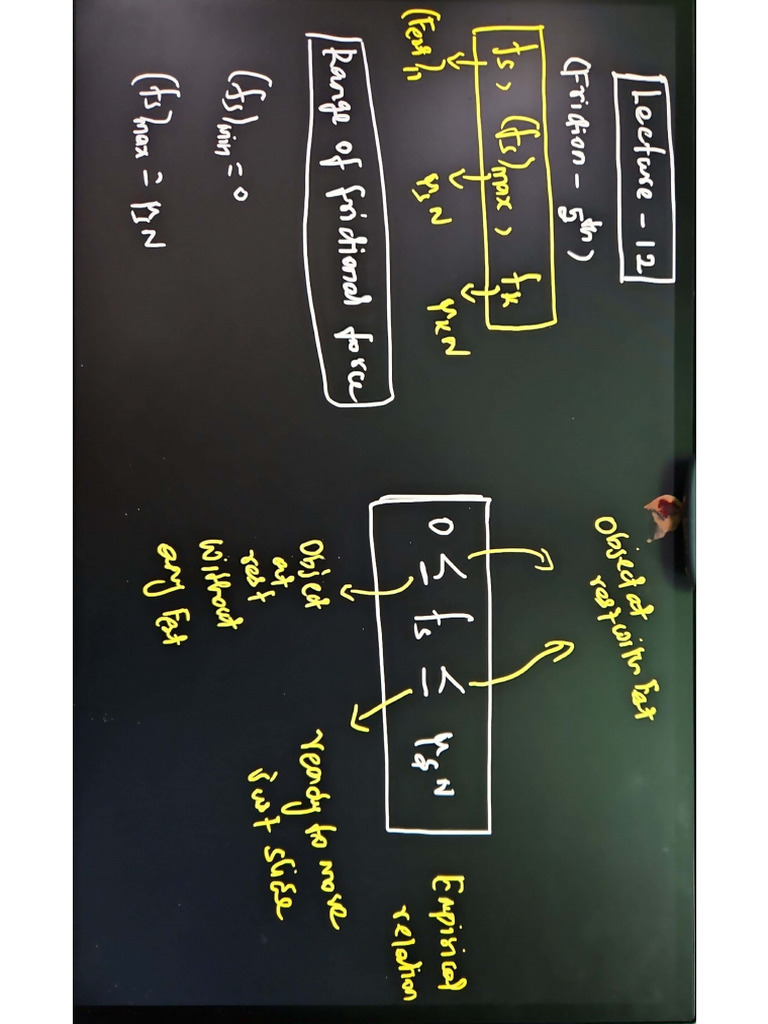 Lecture - 12
(Friction - 5th)
fs, (fs)max, fk
(Fext)
μsN
μkN
Range of frictional force
(fs)min = 0
(fs)max = μsN
Object at
rest with Fext
0 ≤ fs ≤ μsN
Object
at
rest
without
any Fext
ready to move
just slide
Empirical
relation